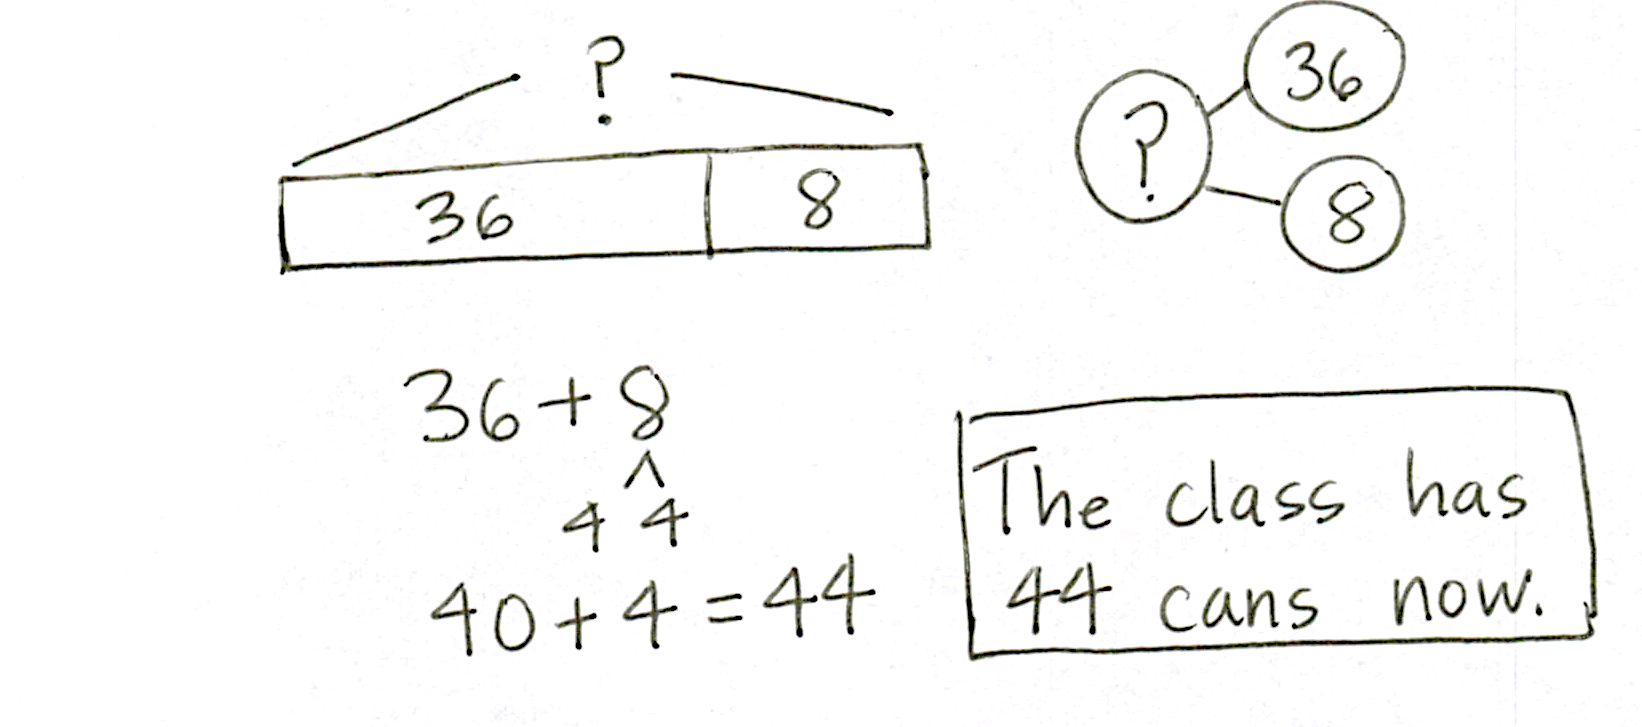 ?
36 8
? 36
8
36 + 8
^
4 4
40 + 4 = 44
The class has
44 cans now.